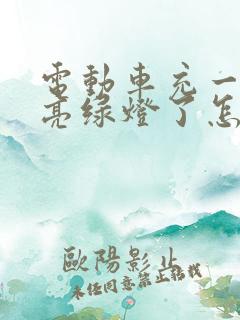 電動車充一
亮綠燈了怎
歐陽影止
未经同意禁止转载